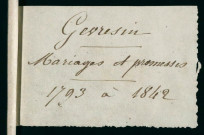 Gevresin
Mariages et promesses
1793 à 1842